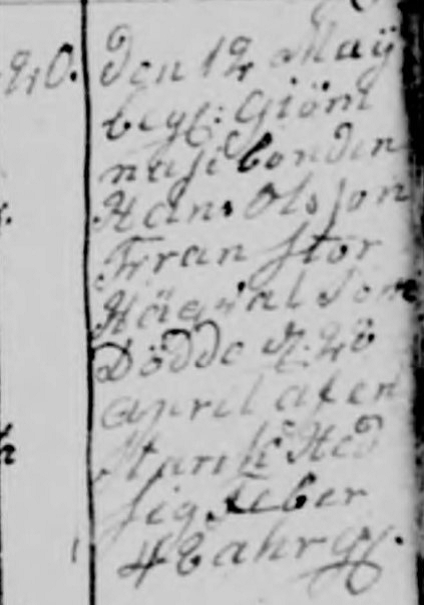 20. Den 12 Maÿ
begr: Giöni
nasi bonden
Hans Olsson
Fran stor
Hägdal som
Dödde d: 28
april af en
stark Hed
sig feber
48 ahr g.